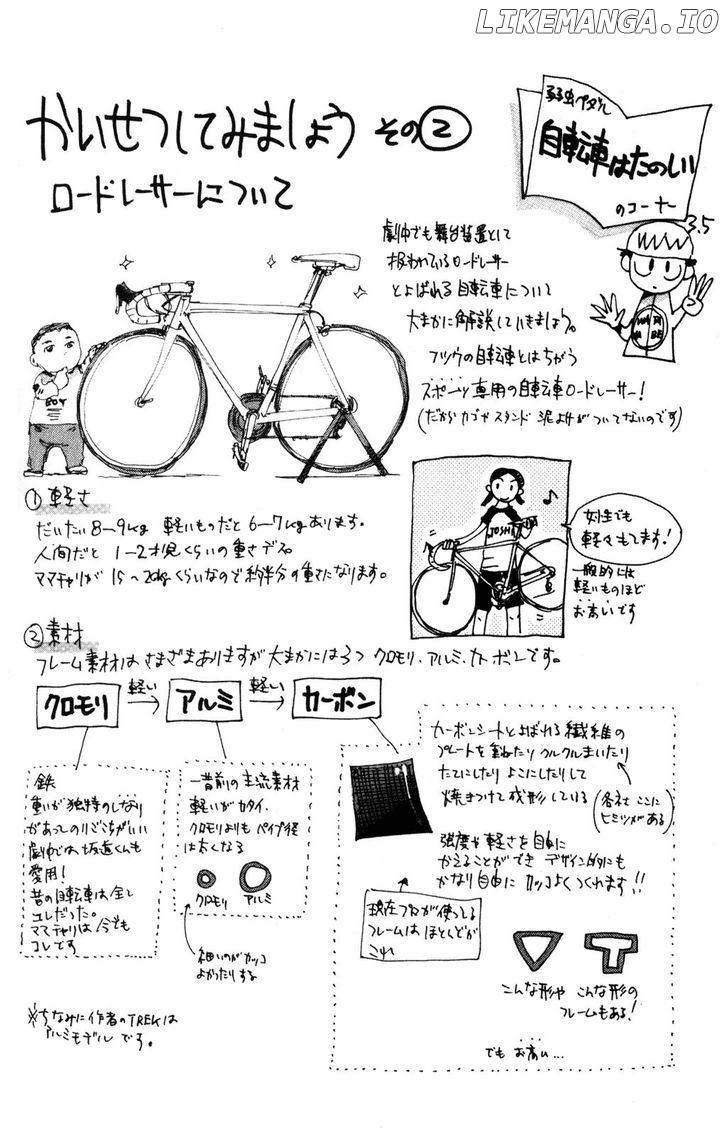 LIKEMANGA.IO
かいせつしてみましょう その②
ロードレーサーについて
弱虫ペダル
自転車はたのしい
のコーナー
3.5
劇中でも舞台装置として
扱われているロードレーサー
とよばれる自転車について
大まかに解説していきましょう。
フツウの自転車とはちがう
スポーツ専用の自転車ロードレーサー!
(だからカゴやスタンド 泥よけがついてないのです)
BOY
①軽さ
だいたい8〜9kg 軽いものだと6〜7kgあります。
人間だと 1〜2才児くらいの重さデス。
ママチャリが15〜20kgくらいなので約半分の重さになります。
JOSHI
女子でも
軽々もてます!
一般的には
軽いものほど
お高いです
②素材
フレーム素材はさまざまありますが大まかには3つ クロモリ、アルミ、カーボンです。
クロモリ 軽い→ アルミ 軽い→ カーボン
鉄
重いが独特のしなり
があってのりごこちがいい
劇中では坂道くんも
愛用!
昔の自転車は全て
コレだった。
ママチャリは今でも
コレです
一昔前の主流素材
軽いがカタイ、
クロモリよりもパイプ径
は太くなる
クロモリ アルミ
細いのがカッコ
よかったりする
カーボンシートとよばれる繊維の
プレートを重ねたり クルクルまいたり
たてにしたり よこにしたりして
焼きつけて成形している
(各社ここに
ヒミツがある)
強度や軽さを自由に
かえることができ デザイン的にも
かなり自由に カッコよくつくれます!!
現在プロが使ってる
フレームは ほとんどが
これ
こんな形や こんな形の
フレームもある!
でも お高い…
※ちなみに作者のTREKは
アルミモデルです。